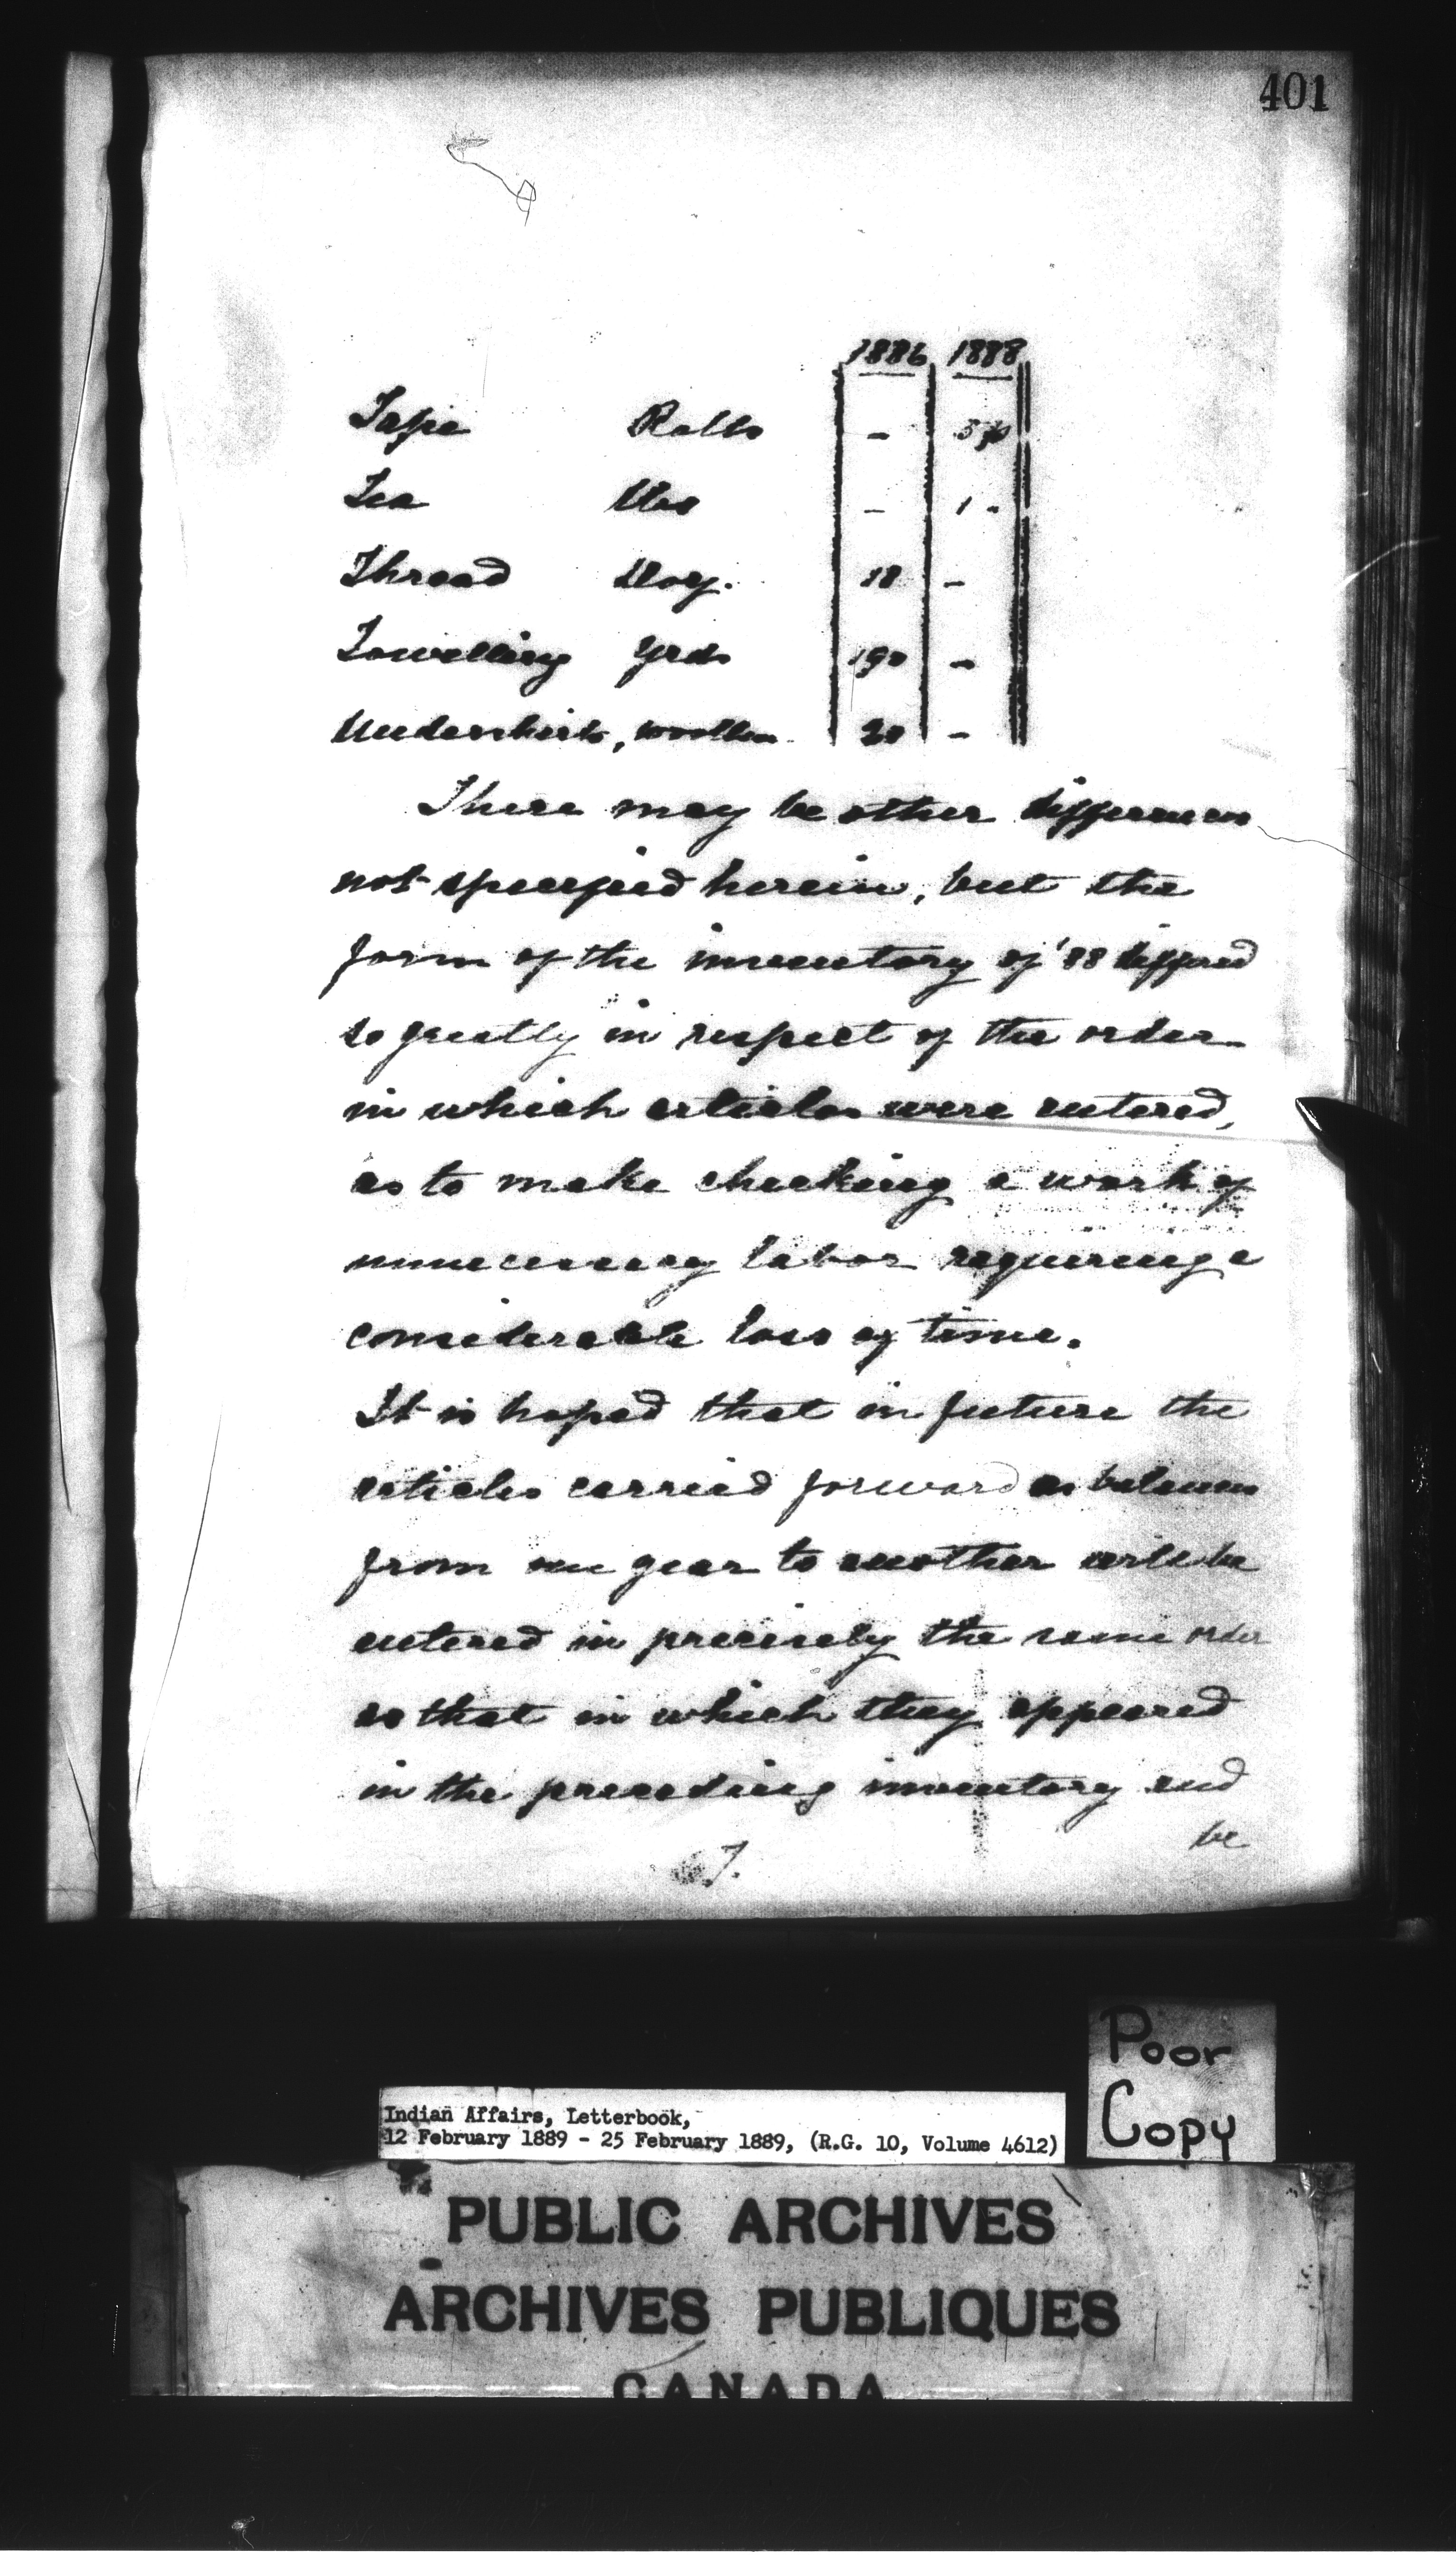 401
1886 1888
Tape Rolls -
Tea lbs - 1 -
Thread Doz. 18 -
Towelling yrds 190 -
Undershirts, woollen 20 -
There may be other differences
not specified herein, but the
form of the inventory of '88 differed
so greatly in respect of the order
in which articles were entered,
as to make checking a work of
unnecessary labor requiring a
considerable loss of time.
It is hoped that in future the
articles carried forward as balances
from one year to another will be
entered in precisely the same order
as that in which they appeared
in the preceding inventory and
be
7.
Poor
Copy
Indian Affairs, Letterbook,
12 February 1889 - 25 February 1889, (R.G. 10, Volume 4612)
PUBLIC ARCHIVES
ARCHIVES PUBLIQUES
CANADA